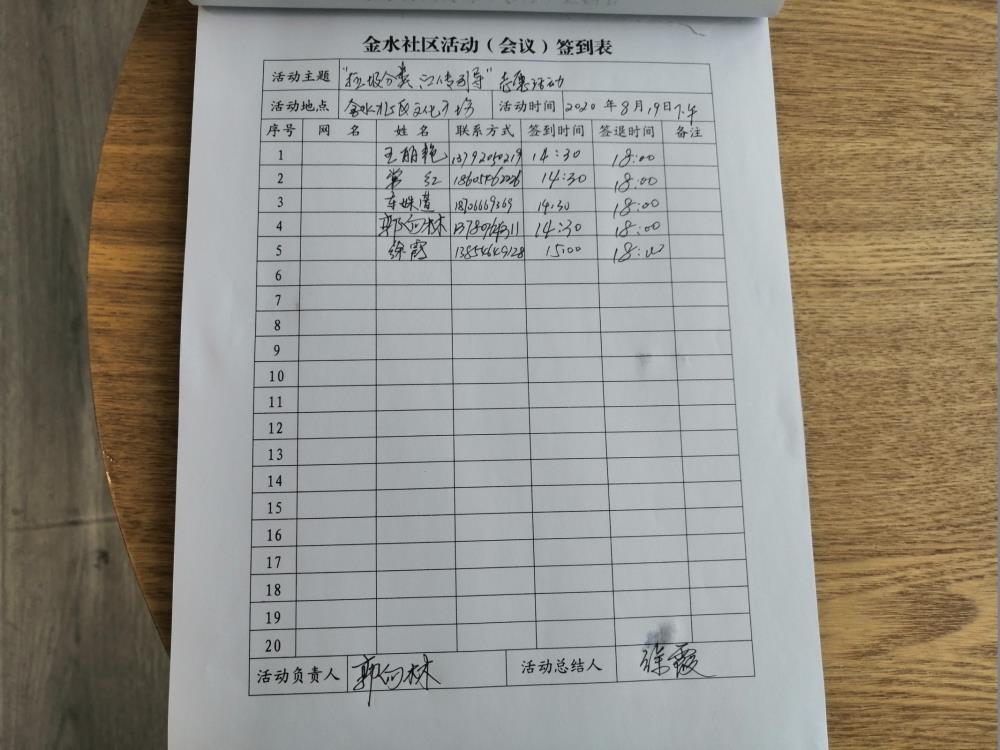 金水社区活动（会议）签到表
活动主题 "垃圾分类 宣传引导"志愿活动
活动地点 金水社区文化广场 活动时间 2020年8月19日下午
序号 网 名 姓 名 联系方式 签到时间 签退时间 备注
1 王丽艳 13792050219 14:30 18:00
2 常 红 18605462026 14:30 18:00
3 车姝萱 18706669369 14:30 18:00
4 郭向林 14:30 18:00
5 徐霞 13854649128 15:00 18:00
6
7
8
9
10
11
12
13
14
15
16
17
18
19
20
活动负责人 郭向林 活动总结人 徐霞